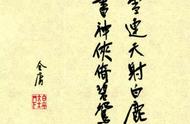 雪連天射白鹿
書神俠倚碧鴛
金庸